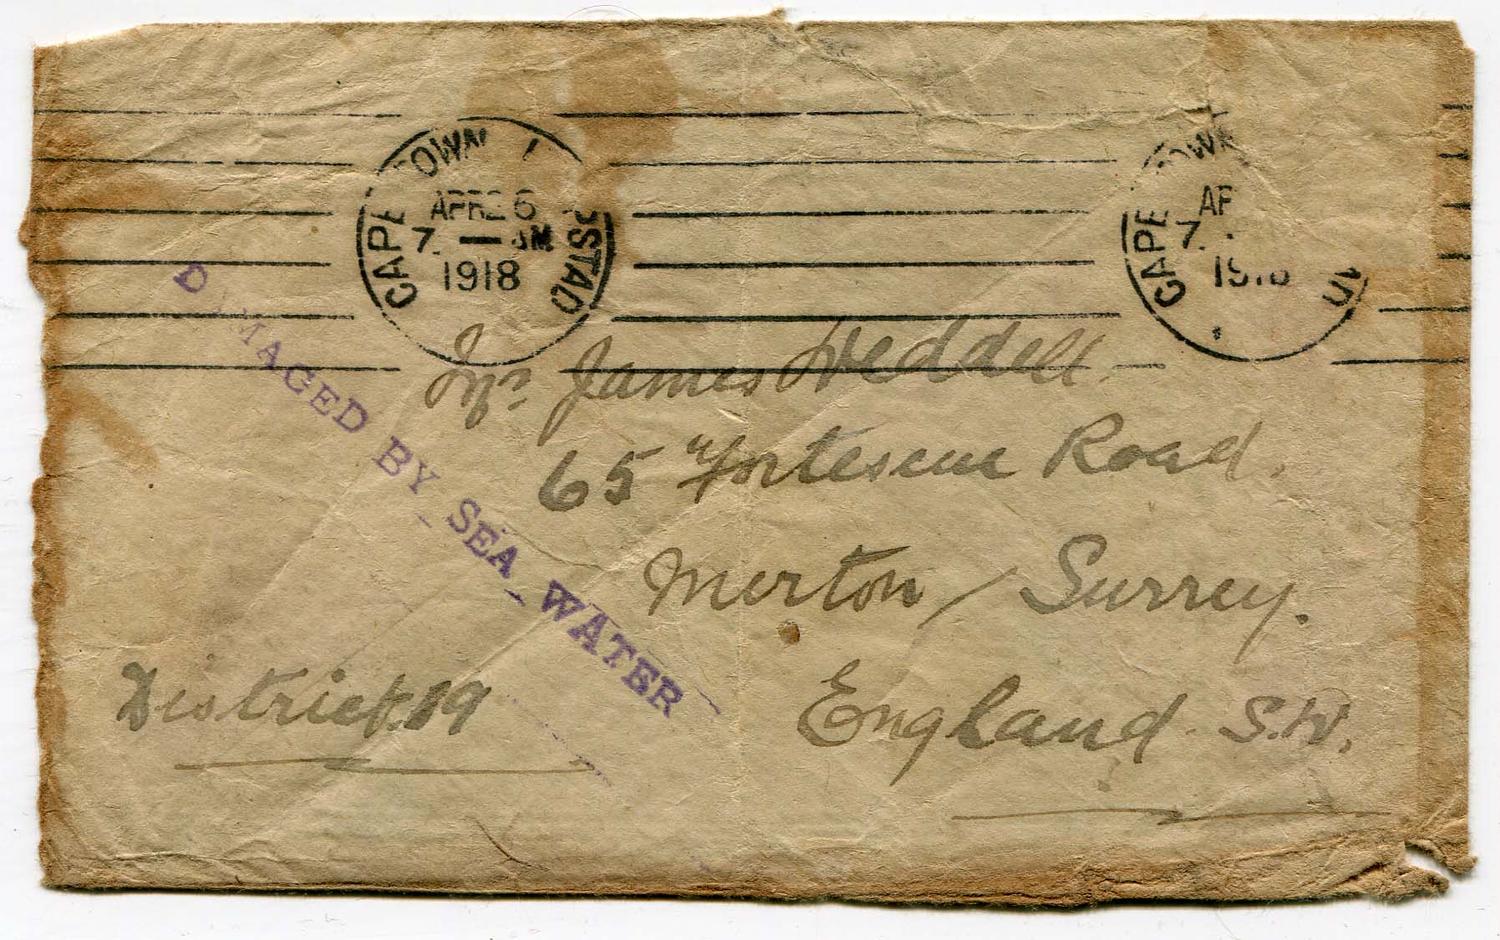 CAPE TOWN
KAAPSTAD
APR 26
7. — AM
1918
CAPE TOWN
AP
7.
1918
DAMAGED BY SEA WATER
Mr James Weddell
65 Fortescue Road.
Merton / Surrey.
England. S.W.
District. 19